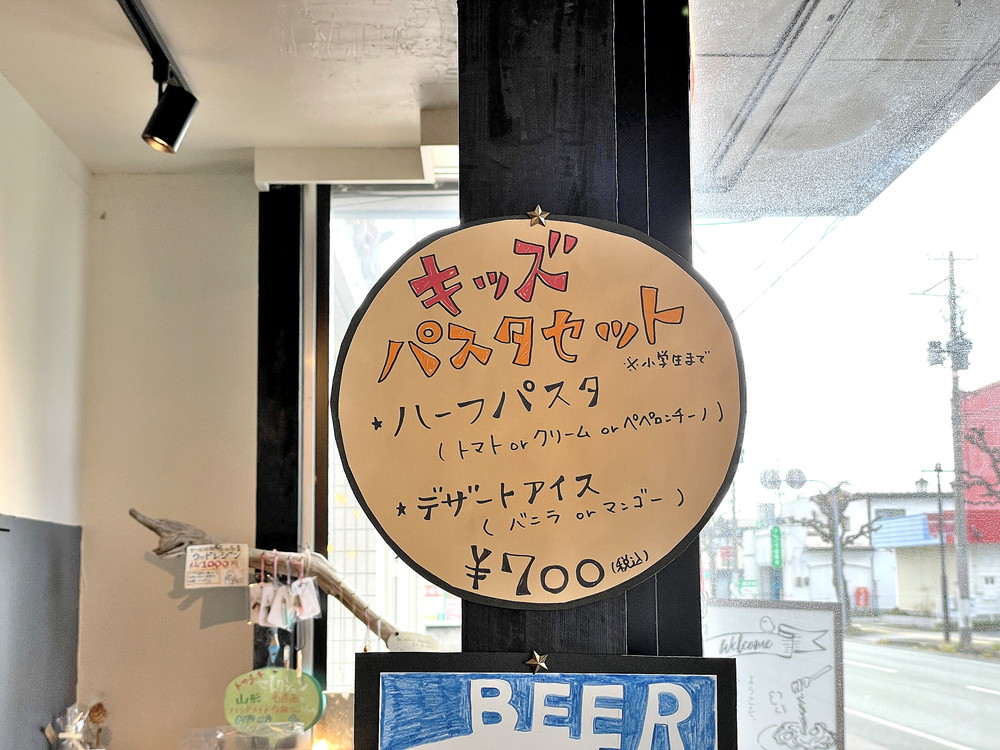 キッズ
パスタセット
※小学生まで
★ハーフパスタ
(トマト or クリーム or ペペロンチーノ)
★デザートアイス
(バニラ or マンゴー)
¥700(税込)
BEER
Welcome
ウッドレジン
1000円
山形